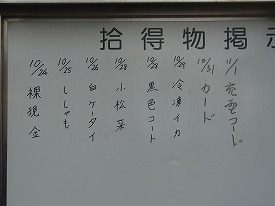 拾得物掲示
11/1 充電コード
10/31 カード
10/29 冷凍イカ
10/29 黒色コート
10/28 小松菜
10/26 白ケータイ
10/25 ししゃも
10/24 裸現金